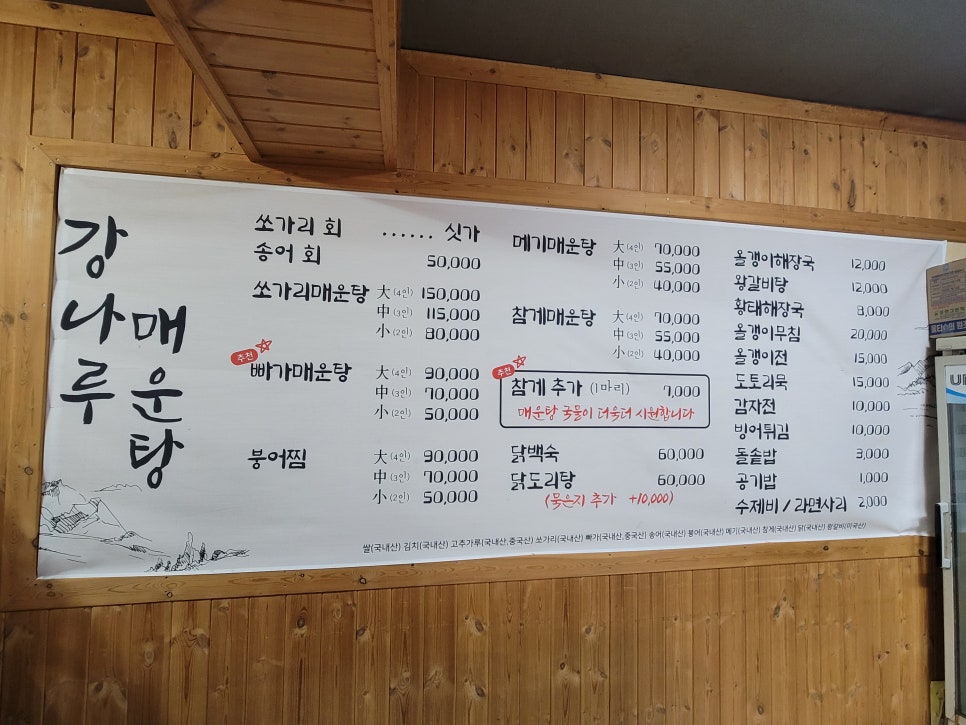 강나루
매운탕
쏘가리 회 ...... 싯가
송어 회 50,000
쏘가리매운탕 大 (4인) 150,000
中 (3인) 115,000
小 (2인) 80,000
추천
빠가매운탕 大 (4인) 90,000
中 (3인) 70,000
小 (2인) 50,000
붕어찜 大 (4인) 90,000
中 (3인) 70,000
小 (2인) 50,000
메기매운탕 大 (4인) 70,000
中 (3인) 55,000
小 (2인) 40,000
참게매운탕 大 (4인) 70,000
中 (3인) 55,000
小 (2인) 40,000
추천
참게 추가 (1마리) 7,000
매운탕 국물이 더욱더 시원합니다
닭백숙 60,000
닭도리탕 60,000
(묵은지 추가 +10,000)
올갱이해장국 12,000
왕갈비탕 12,000
황태해장국 8,000
올갱이무침 20,000
올갱이전 15,000
도토리묵 15,000
감자전 10,000
빙어튀김 10,000
돌솥밥 3,000
공기밥 1,000
수제비 / 라면사리 2,000
쌀(국내산) 김치(국내산) 고추가루(국내산,중국산) 쏘가리(국내산) 빠가(국내산,중국산) 송어(국내산) 붕어(국내산) 메기(국내산) 참게(국내산) 닭(국내산) 왕갈비(미국산)